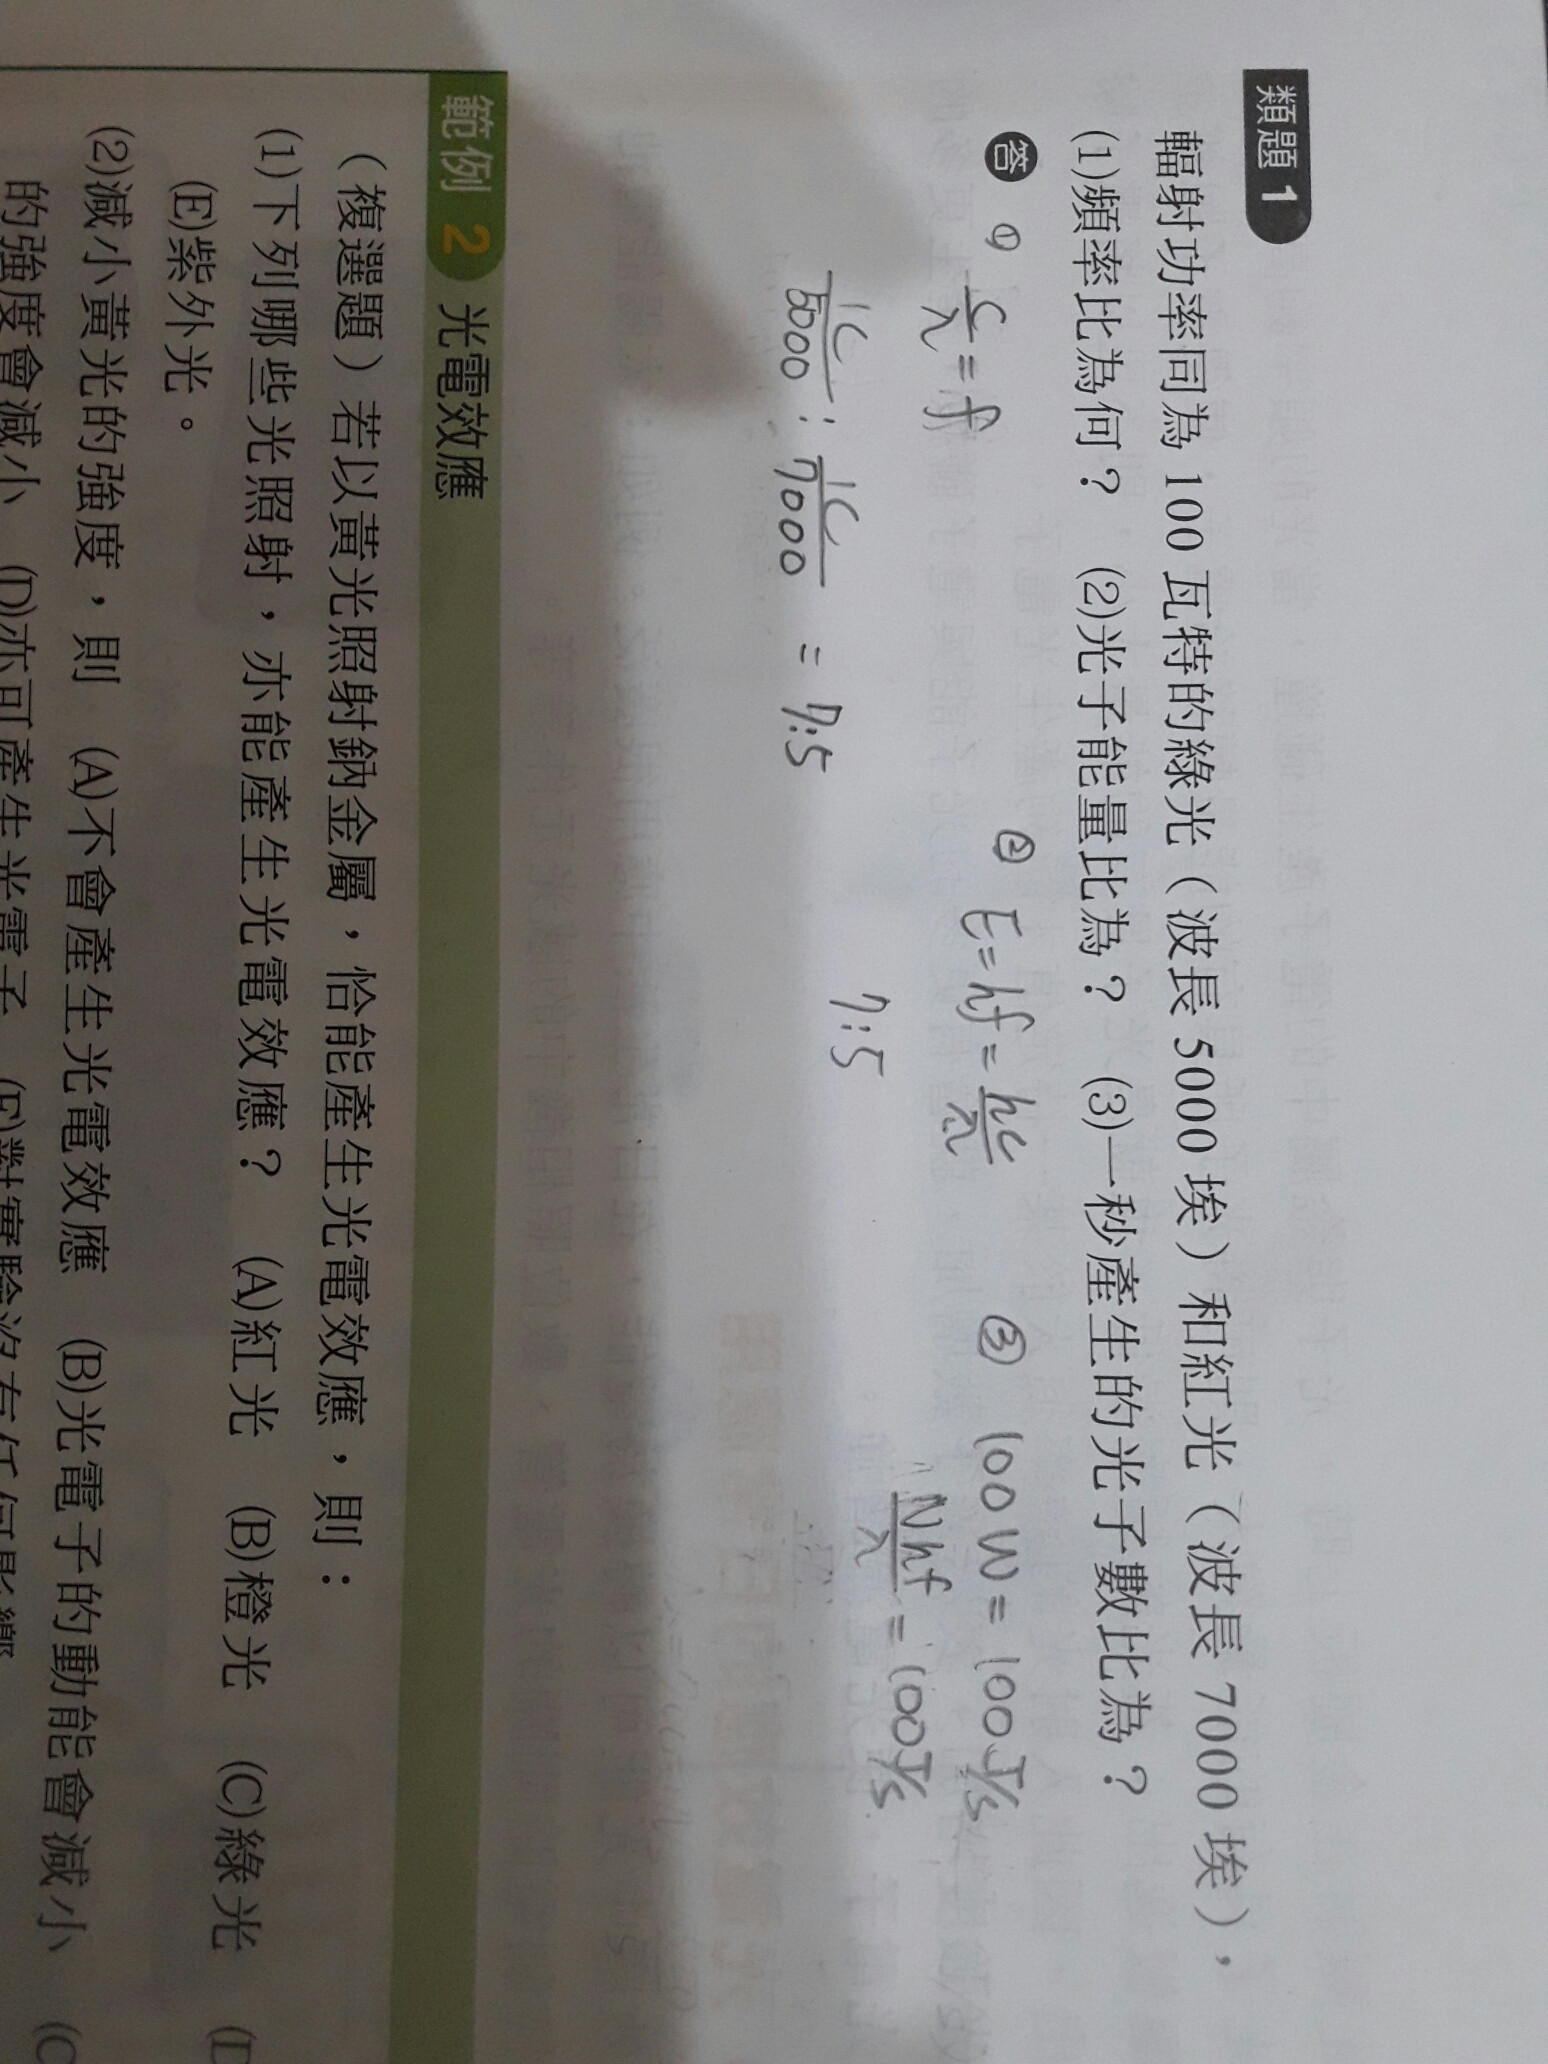 類題 1
輻射功率同為 100 瓦特的綠光（波長 5000 埃）和紅光（波長 7000 埃），
(1)頻率比為何？ (2)光子能量比為？ (3)一秒產生的光子數比為？
答 ① ② E=hf=hc/λ ③ 100W=100J/s
c/λ=f Nhf/λ=100J/s
1C/5000 : 1C/7000 = 7:5 7:5
範例 2 光電效應
（複選題）若以黃光照射鈉金屬，恰能產生光電效應，則：
(1)下列哪些光照射，亦能產生光電效應？ (A)紅光 (B)橙光 (C)綠光 (D
(E)紫外光。
(2)減小黃光的強度，則 (A)不會產生光電效應 (B)光電子的動能會減小 (C
的強度會減小 (D)亦可產生光電子 (E)對實驗沒有任何影響